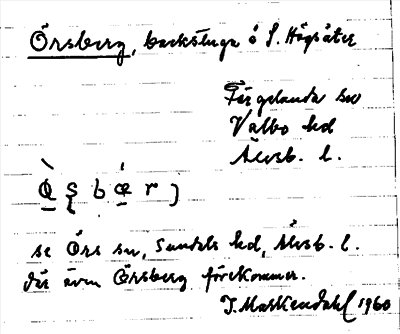 Örsberg, backstuga å S. Högsäter
Färgelanda sn
Valbo hd
Älvsb. l.
se Örs sn, Sundals hd, Älvsb. l.
där även Örsberg förekommer.
J. Markendahl 1960